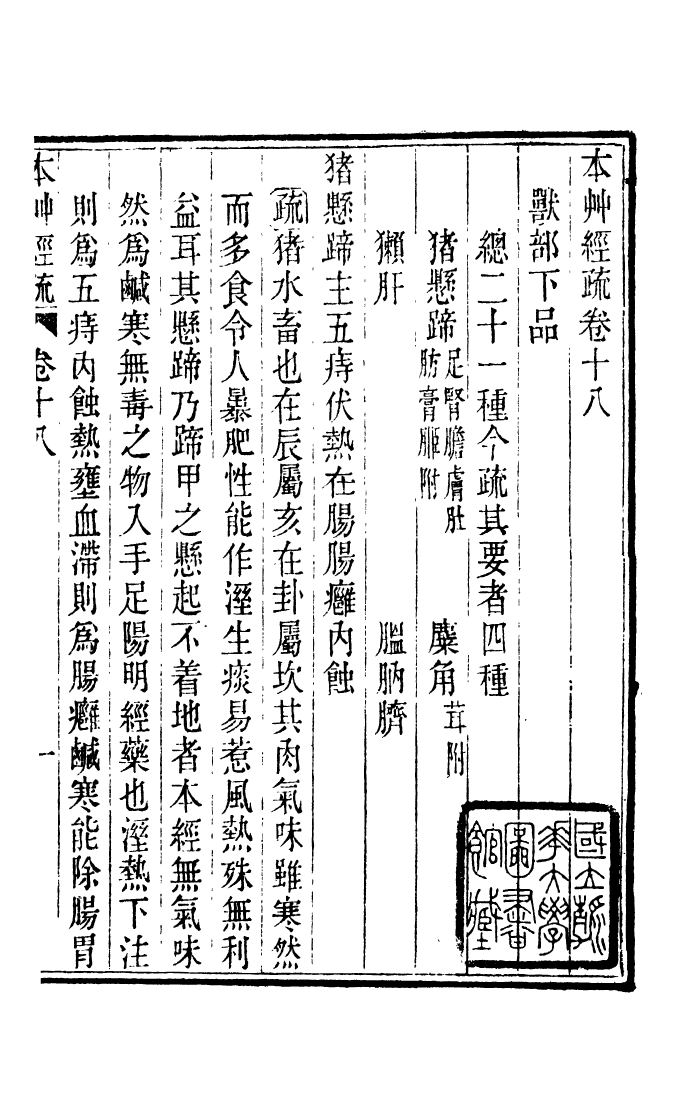 本艸經疏卷十八
獸部下品
總二十一種今疏其要者四種
猪懸蹄足腎膽膚肚肪膏䐁附　麋角茸附
獺肝　膃肭臍
猪懸蹄主五痔伏熱在腸腸癰內蝕
疏猪水畜也在辰屬亥在卦屬坎其肉氣味雖寒然
而多食令人暴肥性能作溼生痰易惹風熱殊無利
益耳其懸蹄乃蹄甲之懸起不着地者本經無氣味
然爲鹹寒無毒之物入手足陽明經藥也溼熱下注
則爲五痔內蝕熱壅血滯則爲腸癰鹹寒能除腸胃
本艸經疏　卷十八　一
國立
大學
圖書
館藏